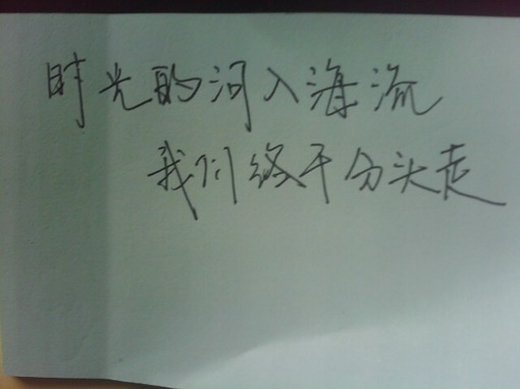 时光的河入海流
我们终于分头走